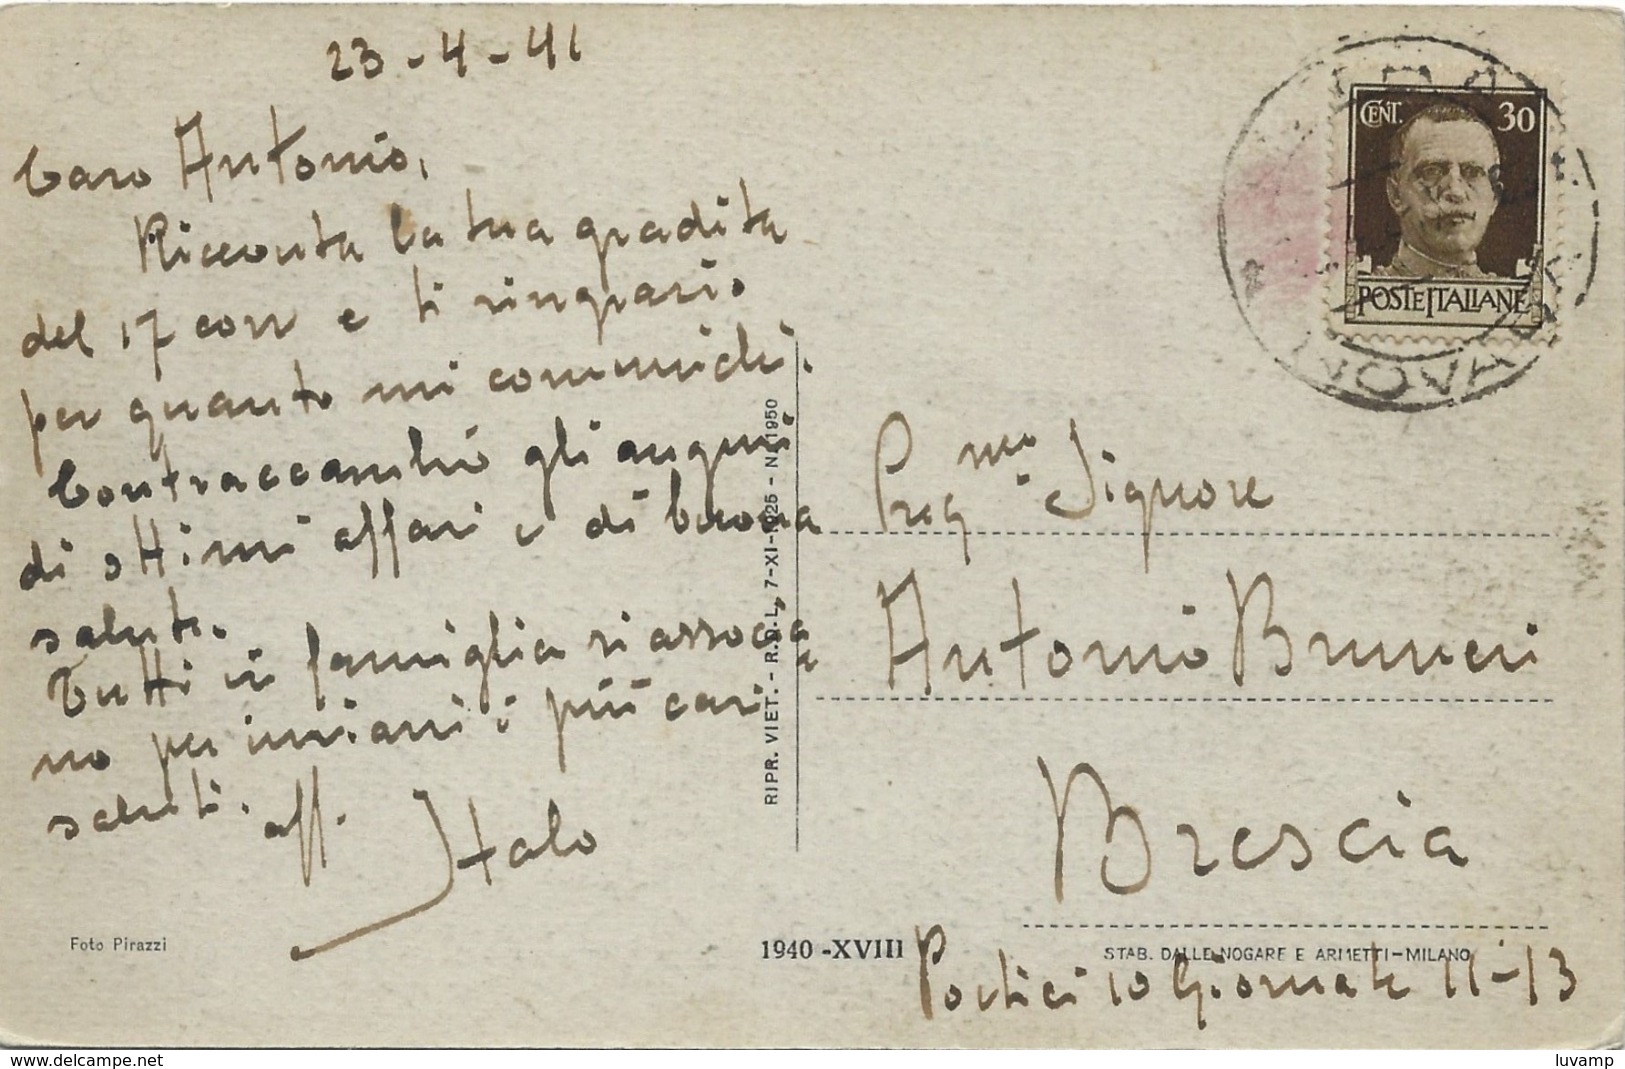 23-4-41
Caro Antonio,
Ricevuta la tua gradita
del 17 corr e ti ringrazio
per quanto mi comunichi.
Contraccambio gli auguri
di ottimi affari e di buona
salute.
Tutti in famiglia si associa
no per inviarvi i più cari
saluti.
aff.
Italo
Foto Pirazzi
RIPR. VIET. - R.D.L. 7-XI-1925 - N. 1950
1940 -XVIII
CENT. 30
POSTE ITALIANE
Preg.mo Signore
Antonio Bruneri
Brescia
STAB. DALLE NOGARE E ARMETTI-MILANO
Portici 10 Giornate 11-13
delcampe.net
luvamp